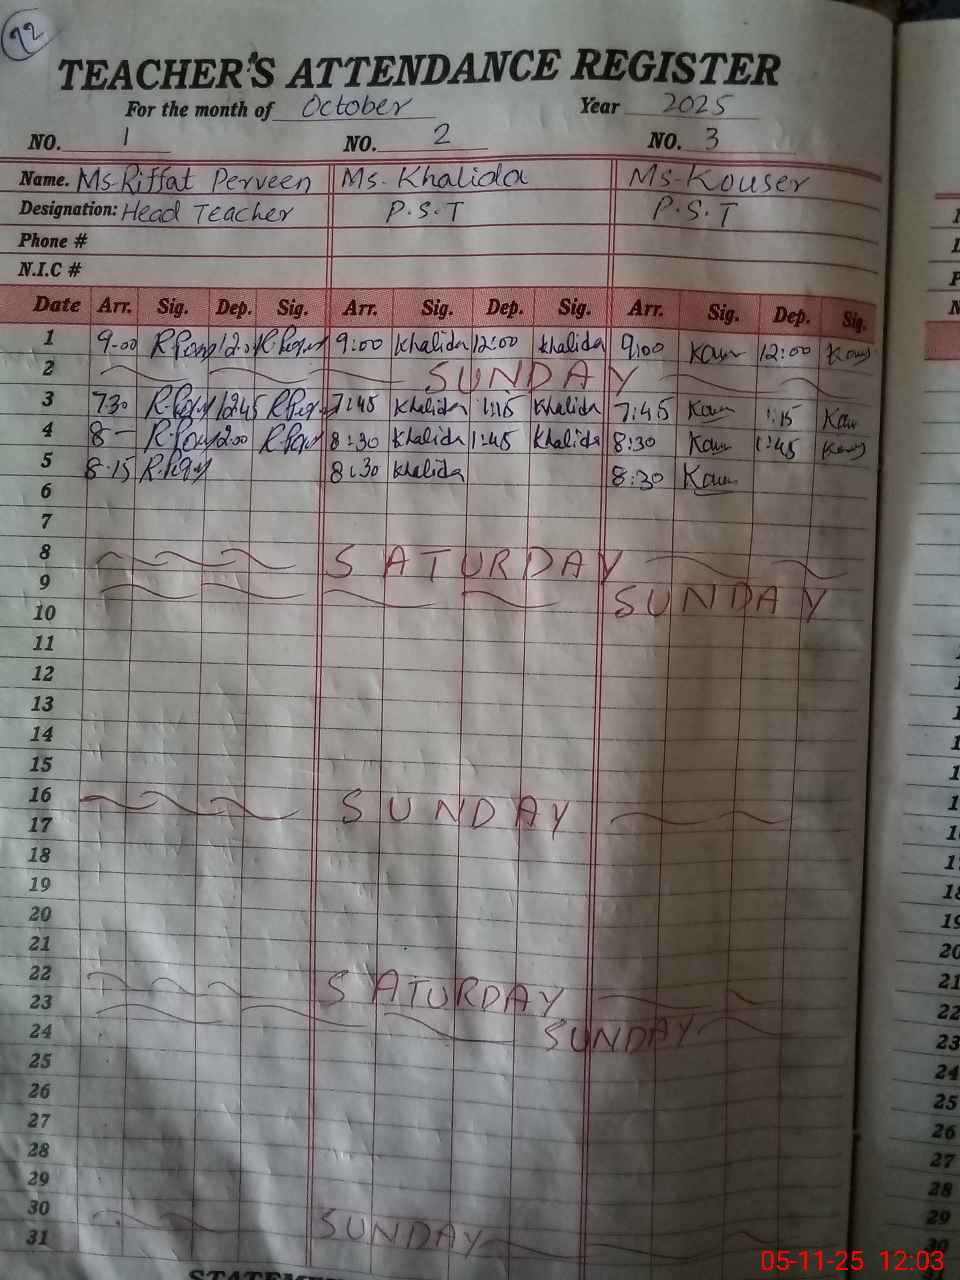 92
TEACHER'S ATTENDANCE REGISTER
For the month of October Year 2025
NO. 1 NO. 2 NO. 3
Name. Ms-Riffat Perveen Ms. Khalida Ms-Kouser
Designation: Head Teacher P.S.T P.S.T
Phone #
N.I.C #
Date Arr. Sig. Dep. Sig. Arr. Sig. Dep. Sig. Arr. Sig. Dep. Sig.
1 9-00 9:00 Khalida 12:00 Khalida 9:00 12:00
2 SUNDAY
3 730 1245 7:45 Khalida 1:15 Khalida 7:45 1:15
4 8- 8:30 Khalida 1:45 Khalida 8:30 1:45
5 8-15 8:30 Khalida 8:30
6
7
8 SATURDAY
9 SUNDAY
10
11
12
13
14
15
16 SUNDAY
17
18
19
20
21
22 SATURDAY
23 SUNDAY
24
25
26
27
28
29
30 SUNDAY
31
05-11-25 12:03